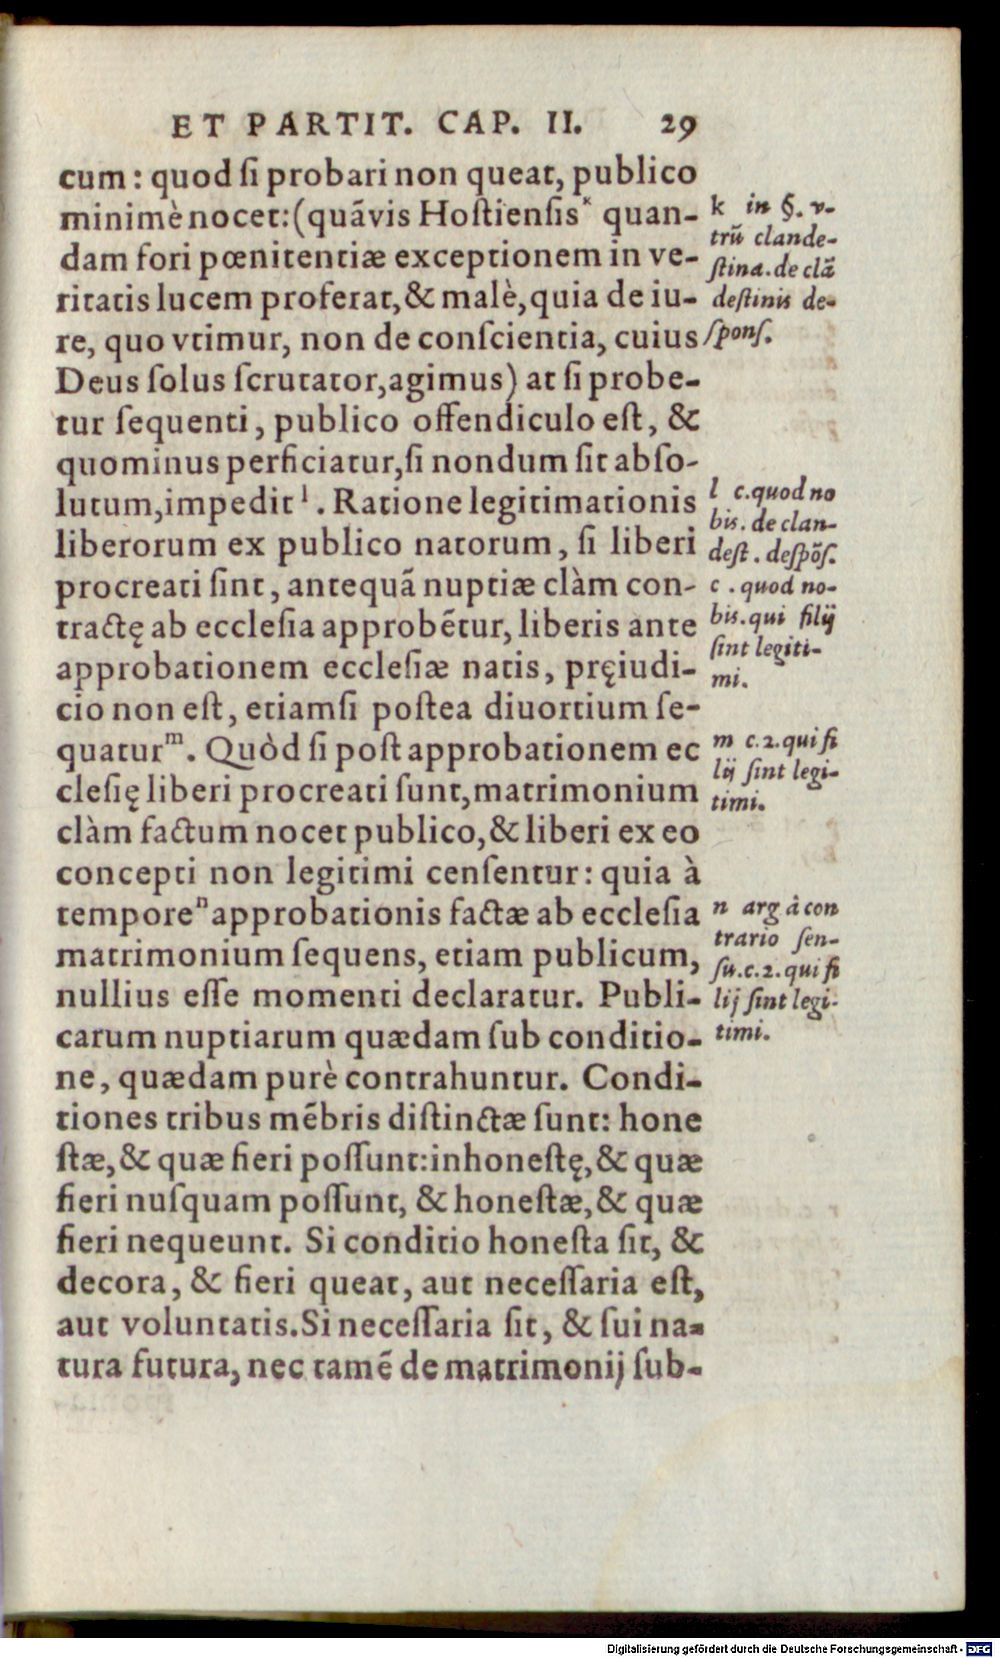 ET PARTIT. CAP. II. 29
cum: quod ſi probari non queat, publico
minimè nocet:(quãvis Hoſtienſis ᵏ quan-
dam fori pœnitentiæ exceptionem in ve-
ritatis lucem proferat,& malè,quia de iu-
re, quo vtimur, non de conſcientia, cuius
Deus ſolus ſcrutator,agimus) at ſi probe-
tur ſequenti, publico offendiculo eſt, &
quominus perficiatur,ſi nondum ſit abſo-
lutum,impedit ˡ. Ratione legitimationis
liberorum ex publico natorum, ſi liberi
procreati ſint, antequã nuptiæ clàm con-
tractę ab eccleſia approbẽtur, liberis ante
approbationem eccleſiæ natis, pręiudi-
cio non eſt, etiamſi poſtea diuortium ſe-
quatur ᵐ. Quòd ſi poſt approbationem ec
cleſię liberi procreati ſunt,matrimonium
clàm factum nocet publico,& liberi ex eo
concepti non legitimi cenſentur: quia à
tempore ⁿ approbationis factæ ab eccleſia
matrimonium ſequens, etiam publicum,
nullius eſſe momenti declaratur. Publi-
carum nuptiarum quædam ſub conditio-
ne, quædam purè contrahuntur. Condi-
tiones tribus mẽbris diſtinctæ ſunt: hone
ſtæ,& quæ fieri poſſunt:inhoneſtę,& quæ
fieri nuſquam poſſunt, & honeſtæ,& quæ
fieri nequeunt. Si conditio honeſta ſit, &
decora, & fieri queat, aut neceſſaria eſt,
aut voluntatis.Si neceſſaria ſit, & ſui na-
tura futura, nec tamẽ de matrimonij ſub-
k in §. v-
trũ clande-
ſtina.de clã
deſtinis de-
ſponſ.
l c.quod no
bis. de clan-
deſt. deſpõſ.
c. quod no-
bis.qui filij
ſint legiti-
mi.
m c.2.qui fi
lij ſint legi-
timi.
n arg à con
trario ſen-
ſu.c.2.qui fi
lij ſint legi-
timi.
Digitalisierung gefördert durch die Deutsche Forschungsgemeinschaft - DFG